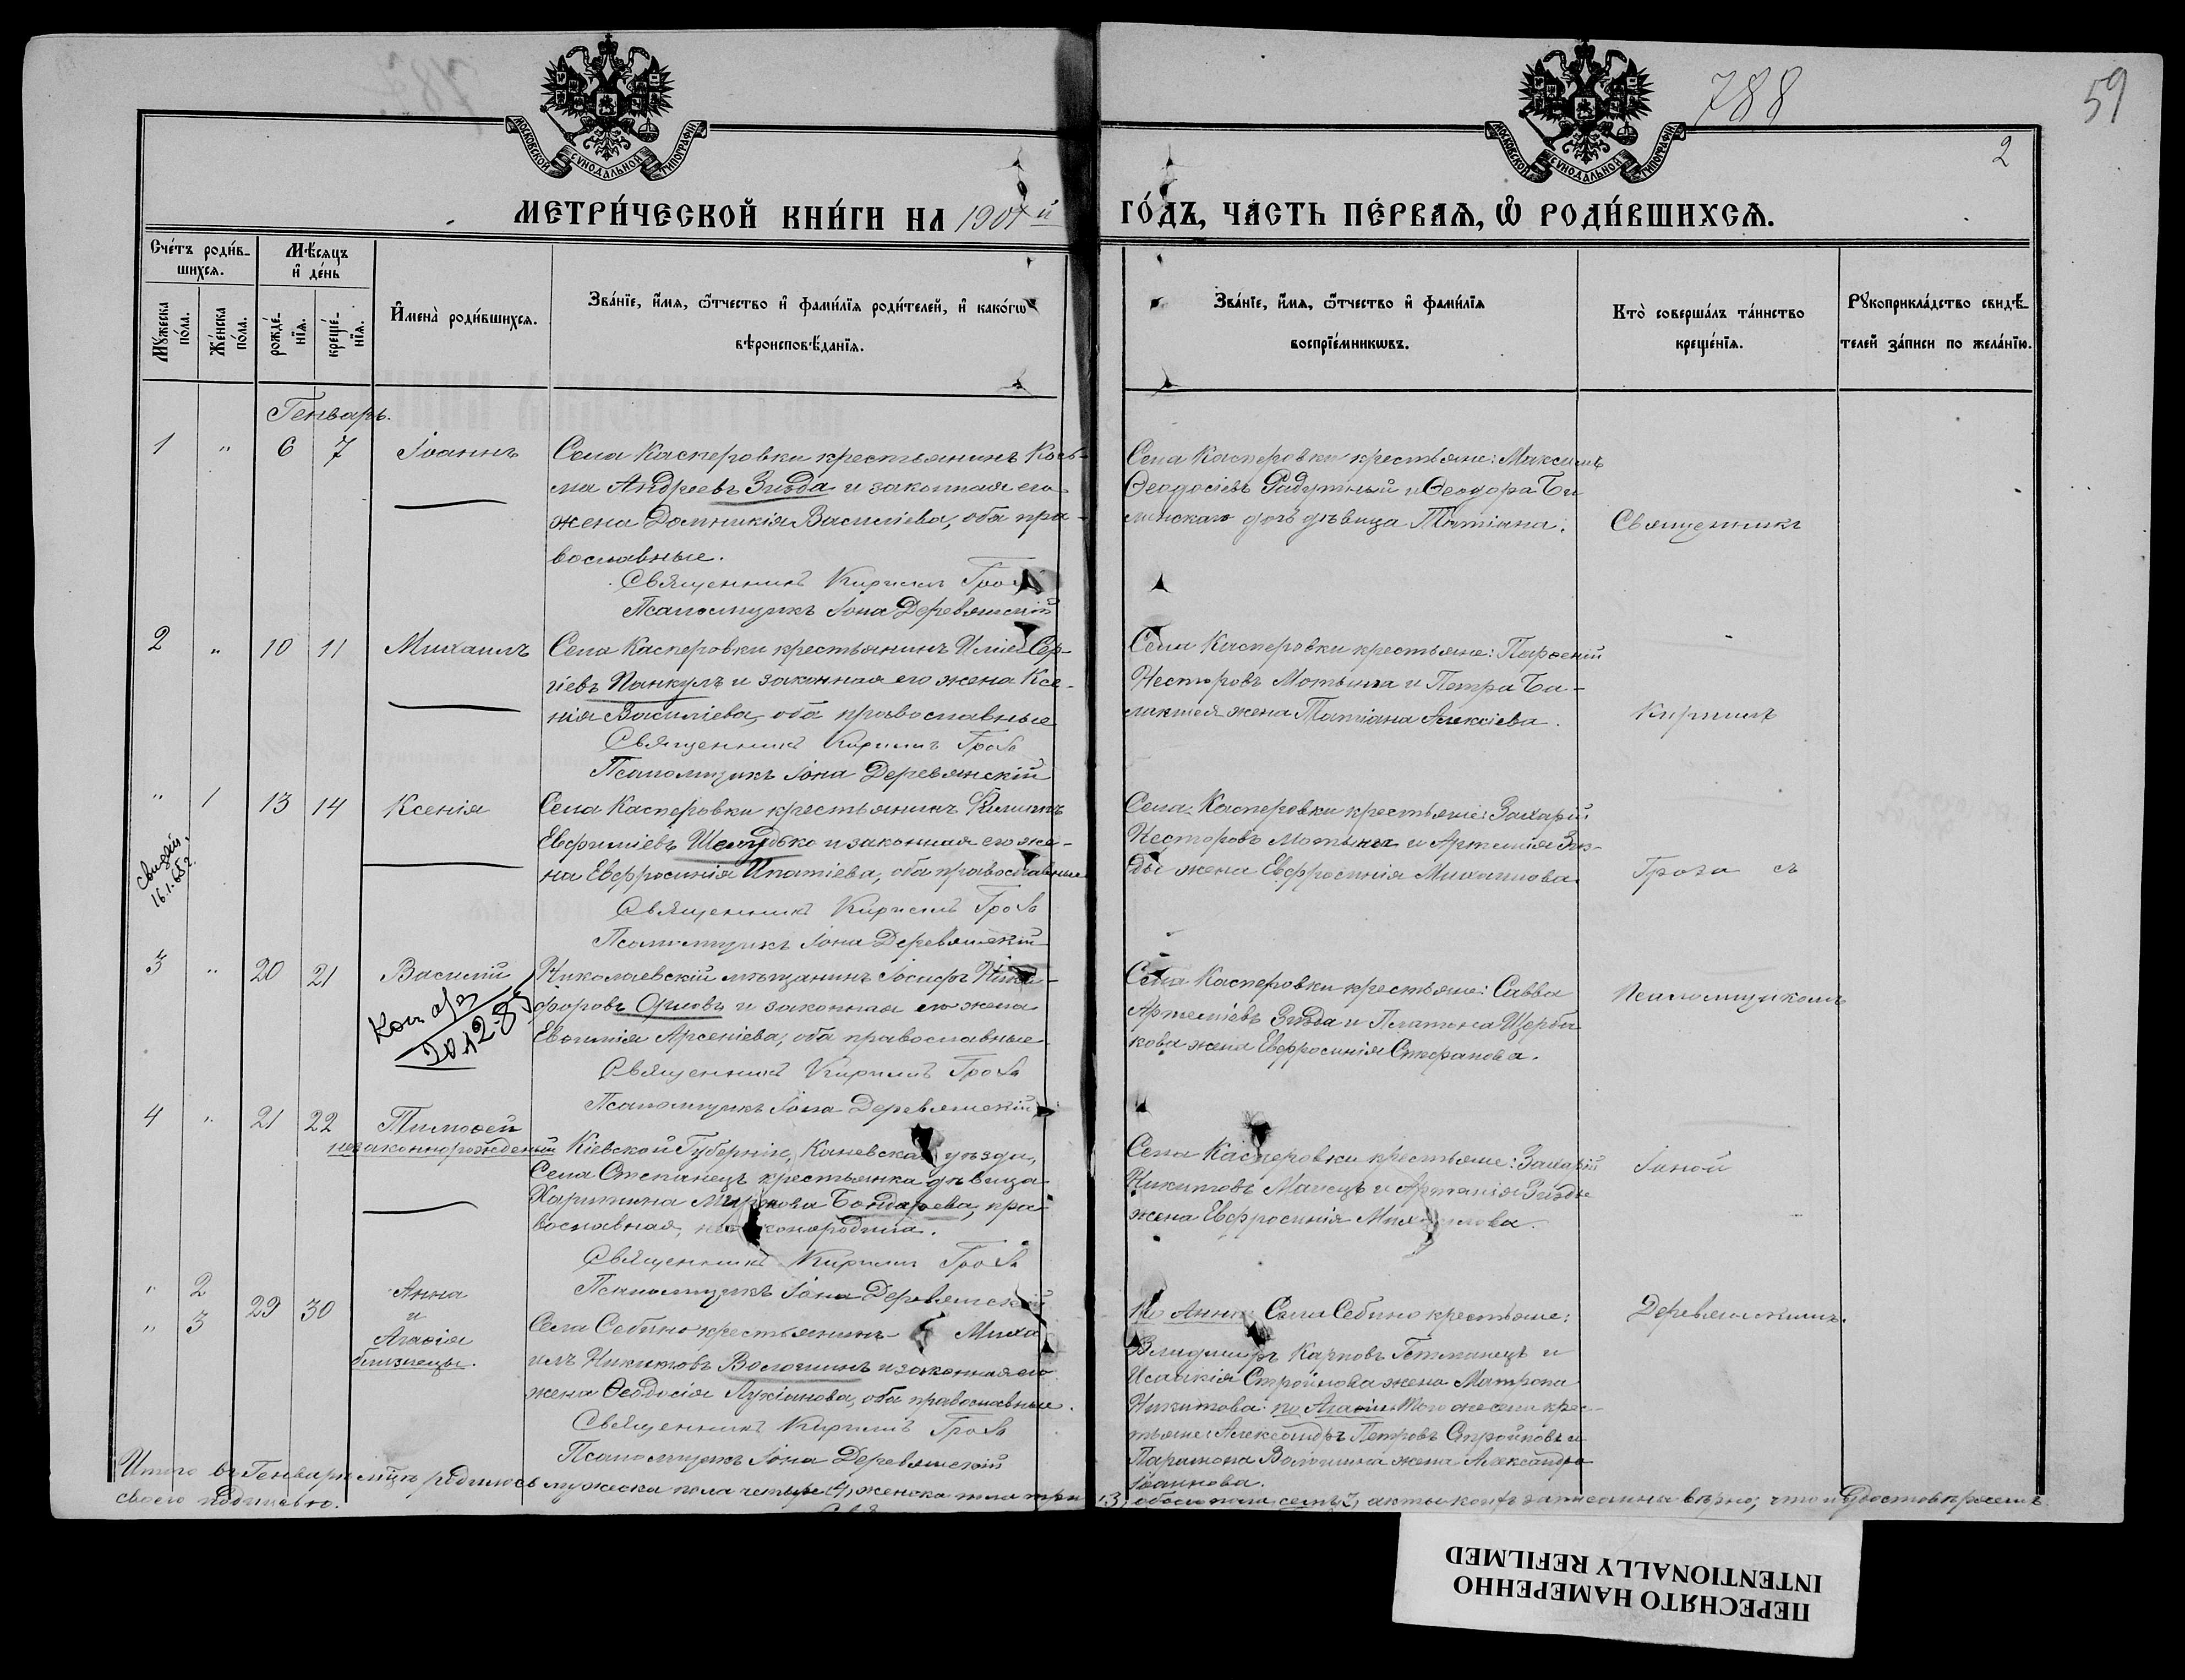 788
59
2
МОСКОВСКОЙ СУНОДАЛЬНОЙ ТИПОГРАФІИ
МОСКОВСКОЙ СУНОДАЛЬНОЙ ТИПОГРАФІИ
МЕТРИ́ЧЕСКОЙ КНИ́ГИ НА 1901 й ГО́ДЪ, ЧА́СТЬ ПЕ́РВАѦ, Ѡ҆ РОДИ́ВШИХСѦ.
Сче́тъ роди́в-
шихсѧ.
Мѣ́сѧцъ
и҆ де́нь
Мꙋ́жеска
по́ла.
Же́нска
по́ла.
рожде́-
нїѧ.
креще́-
нїѧ.
И҆мена̀ роди́вшихсѧ.
Зва́нїе, и҆́мѧ, ѻ҆́тчество и҆ фами́лїѧ роди́телей, и҆ како́гѡ
вѣроисповѣ́данїѧ.
Зва́нїе, и҆́мѧ, ѻ҆́тчество и҆ фами́лїѧ
воспрїе́мникѡвъ.
Кто̀ соверша́лъ та́инство
креще́нїѧ.
Рꙋкоприкла́дство свидѣ́-
телей за́писи по жела́нїю.
Генварь.
1 " 6 7 Іоаннъ
Села Касперовки крестьянинъ Козь-
ма Андреевъ Знѣда и законная его
жена Домникія Василіева, оба пра-
вославные.
Священникъ Кириллъ Гроза
Псаломщикъ Іона Деревянскій
Села Касперовки крестьяне: Максимъ
Ѳеодосіевъ и Ѳеодора
дочь дѣвица Татіана.
Священникъ
2 " 10 11 Михаилъ
Села Касперовки крестьянинъ Илія Сер-
гіевъ Панкулъ и законная его жена Ксе-
нія Василіева, оба православные
Священникъ Кириллъ Гроза
Псаломщикъ Іона Деревянскій
Села Касперовки крестьяне: Парѳеній
Несторовъ Мотына и Петра Ба-
жена Татіана Алексіева.
Кириллъ
" 1 13 14 Ксенія
16.1.65
Села Касперовки крестьянинъ Филиппъ
Евфиміевъ Шелудько и законная его же-
на Евфросинія Ипатіева, оба православные
Священникъ Кириллъ Гроза
Псаломщикъ Іона Деревянскій
Села Касперовки крестьяне: Захарій
Несторовъ Мотына и Артемія Знѣ-
ды жена Евфросинія Михаилова.
Гроза съ
3 " 20 21 Василій
Николаевскій мѣщанинъ Іосифъ Ники-
форовъ Орловъ и законная его жена
Евѳимія Арсеніева, оба православные
Священникъ Кириллъ Гроза
Псаломщикъ Іона Деревянскій
Села Касперовки крестьяне: Савва
Артеміевъ Знѣда и Платона Щерба-
кова жена Евфросинія Стефанова.
Псаломщикомъ
4 " 21 22 Тимоѳей
незаконнорожденый
Кіевской Губерніи, Каневскаго уѣзда,
Села Степанецъ крестьянка дѣвица
Харитина Миронова Бондарева, пра-
вославная,
Священникъ Кириллъ Гроза
Псаломщикъ Іона Деревянскій
Села Касперовки крестьяне: Захарій
Никитовъ и Артемія Знѣды
жена Евфросинія Михаилова.
Іоной
" 2
" 3 29 30
Анна
и
Агаѳія
близнецы.
Села Себино крестьянинъ Миха-
илъ Никитовъ Волошинъ и законная его
жена Ѳеодосія Лукіанова, оба православные.
Священникъ Кириллъ Гроза
Псаломщикъ Іона Деревянскій
По Анне: Села Себино крестьяне:
Владиміръ Карповъ Гетманецъ и
Исаакія Стройнова жена Матрона
Никитова: по Агаѳіи: того же села крес-
тьяне: Александръ Петровъ Стройновъ и
Парамона Волошина жена Александра
Іоаннова.
Деревянскимъ.
Итого въ Генварѣ м-цѣ родилось мужеска пола четыре (4), женска пола три (3), обоего пола семь 7, акты коихъ записаны вѣрно, что и удостовѣряемъ
своею подписью.
ПЕРЕСНЯТО НАМЕРЕННО
INTENTIONALLY REFILMED